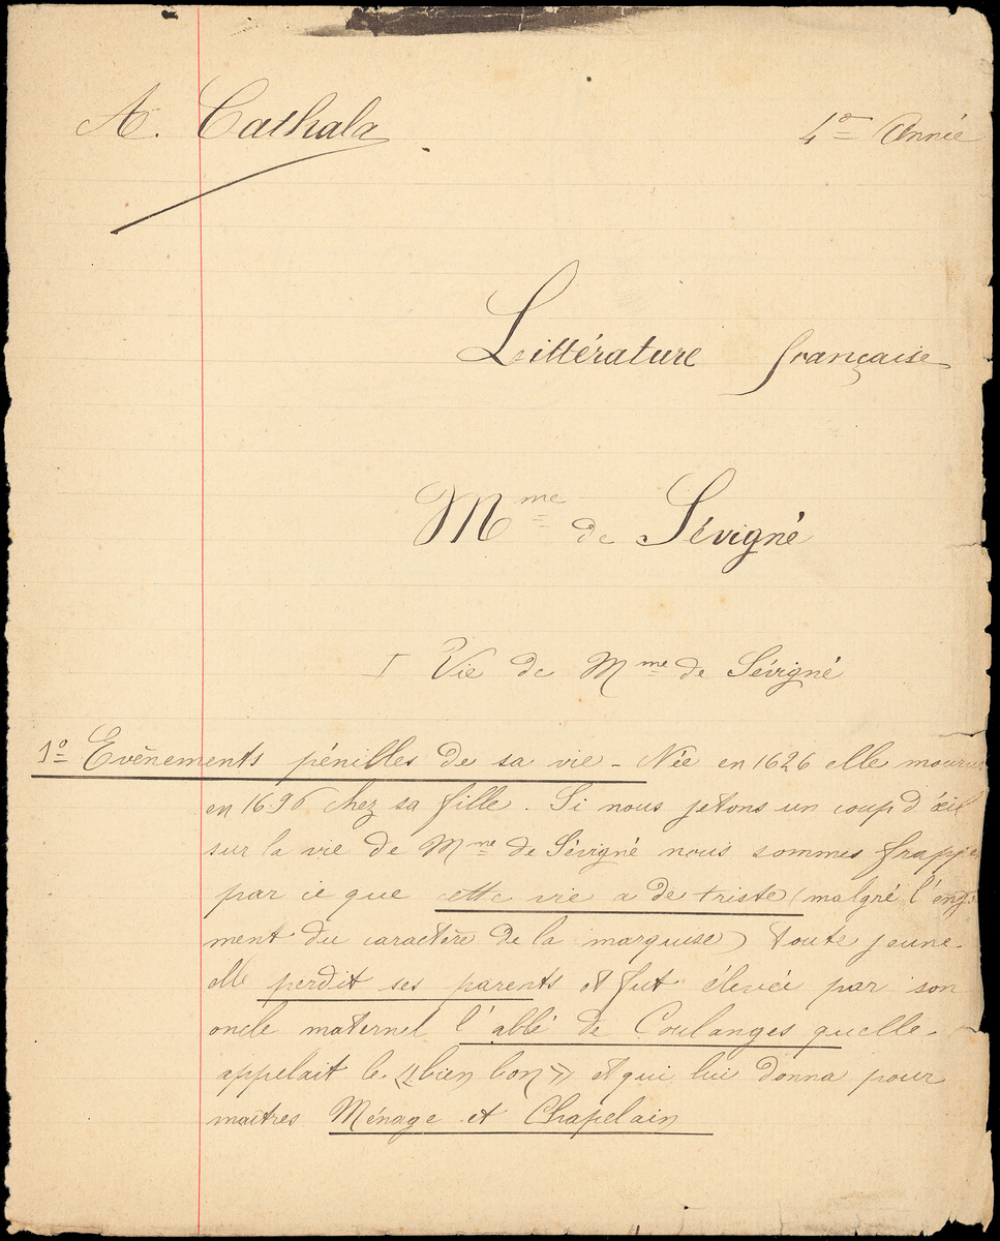 A. Cathala
4e Année
Littérature française
Mme de Sévigné
I Vie de Mme de Sévigné
1º Evènements pénibles de sa vie - Née en 1626 elle mourut
en 1696 chez sa fille. Si nous jetons un coup d'œil
sur la vie de Mme de Sévigné nous sommes frappés
par ce que cette vie a de triste (malgré l'enj
ment du caractère de la marquise) toute jeune
elle perdit ses parents et fut élevée par son
oncle maternel l'abbé de Coulanges quelle
appelait le «bien bon» et qui lui donna pour
maîtres Ménage et Chapelain